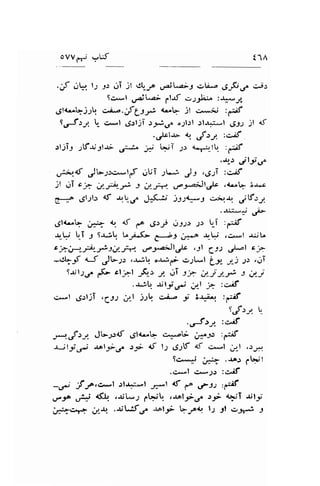 ۴۶۸
کتاب نهم ۵۷۷
دقت می‌نگری صفات وخصائص هریك از آن دو را بیان کن.
پرسید: منظورت کدام خصائص است؟
گفتم: نخست از جامعه شروع‌کن. صفت بارز جامعه‌ای
که از روی استبداد اداره می‌شود آزادی است یا بردگی؟
گفت: بردگی به حداعلی.
گفتم: بااینهمه در آنجا نیز مشتی خداوندگار وآزاد
می‌توانی دید.
گفت: آری، ولی شمار آنان کم‌است‌درحالی که‌بخش
عمدهٔ جامعه، علی‌الخصوص بهترین و شریفترین جزء آن از
بردگانی بدبخت وسیه‌روز تشکیل می‌یابد که دارای هیــچ
حقی نیستند.
گفتم: آیا در درون فردی هم که به چنین جامعه‌ای
مانند است، نباید همین وضــع حکمفرما باشد؟ و آیا نباید
جزء اصلی روح او، علی‌الخصوص بهترین‌وشریفتریـن‌جزء
آن، در زیر یوغ اسارت خم‌شده باشد، درحالی کــه کوچك‌ـ
ترین و شریرترین جزو آن بر دیگر اجزاء حکم می‌راند؟
گفت: جز این نمی‌تواند باشد.
گفتم: بعقیدهٔ تو صفت بارز این روح، آزادی است
یا بردگی؟
گفت: بردگــی.
گفتم: دومین خاصیت جامعه‌ای که‌درحال بردگی‌بسر
ببرد، این است که کاری را که خود می‌خواهد نمی‌توانــد
انجام دهد. چنین نیست؟
گفت: درست است.
گفتم: روحی هم که اسیر استبداد است،هرگز نمی‌ـ
تواند آنچه خود می‌خواهد، بانجام رساند، بلکه نیش هوس
و شهوت او را به‌هرجا خواهد می‌کشاند. بدین جهت‌چنین